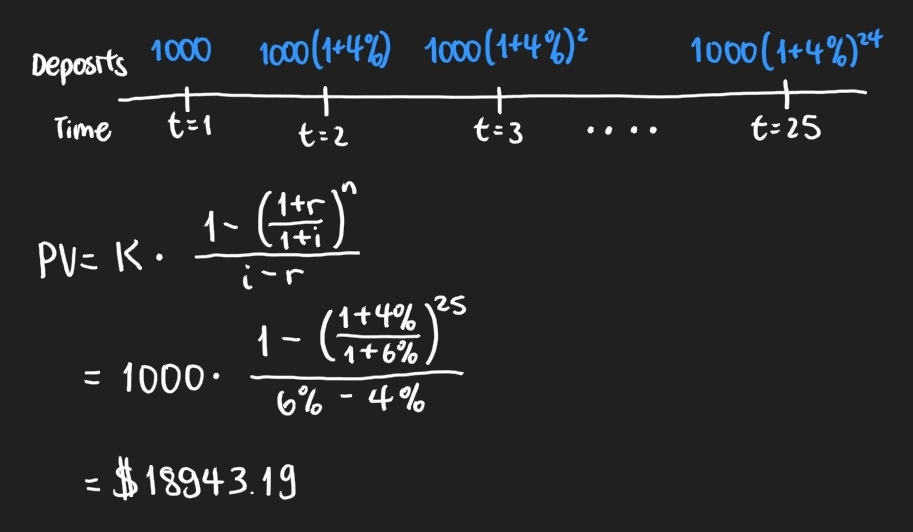 Deposits 1000 1000(1+4%) 1000(1+4%)² 1000(1+4%)²⁴
Time t=1 t=2 t=3 .... t=25
PV= K · (1 - ((1+r)/(1+i))ⁿ)/(i-r)
= 1000 · (1 - ((1+4%)/(1+6%))²⁵)/(6% - 4%)
= $18943.19